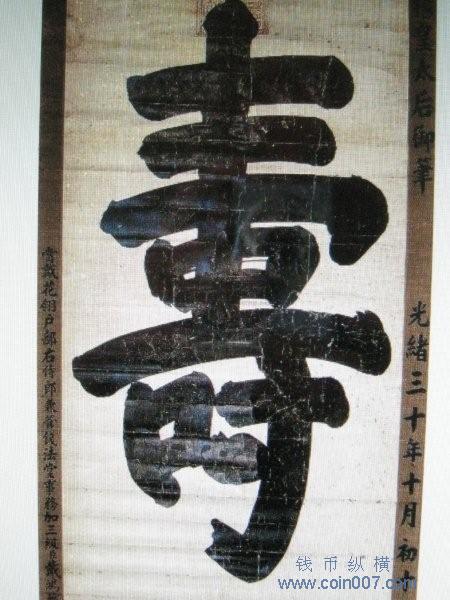 皇太后御筆
光緒三十年十月初
壽
賞戴花翎户部右侍郎兼管錢法堂事務加三級臣戴
钱币纵横
www.coin007.com